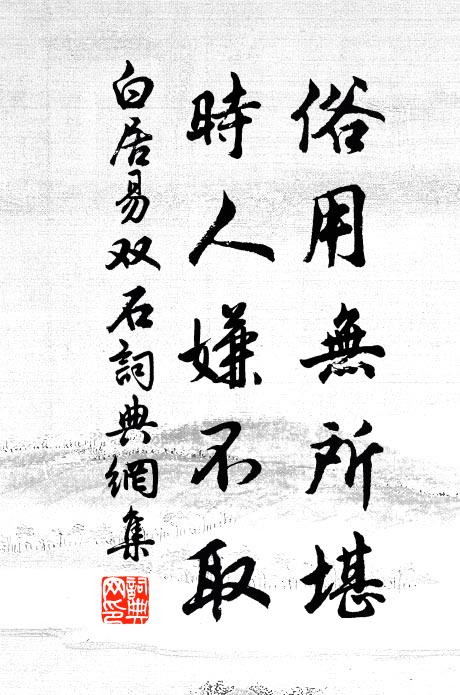 俗用無所堪
時人嫌不取
白居易双石詞典網集
詞典
网印